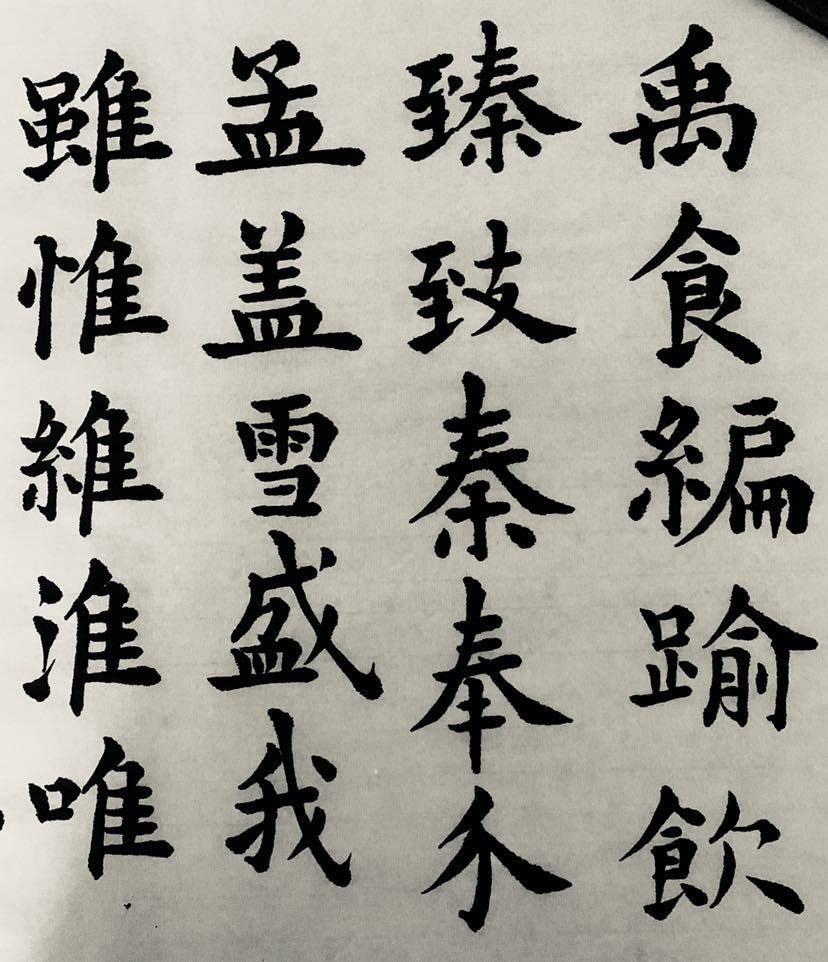 禹食編踰飲
臻致秦奉介
孟盖雪盛我
雖惟維淮唯